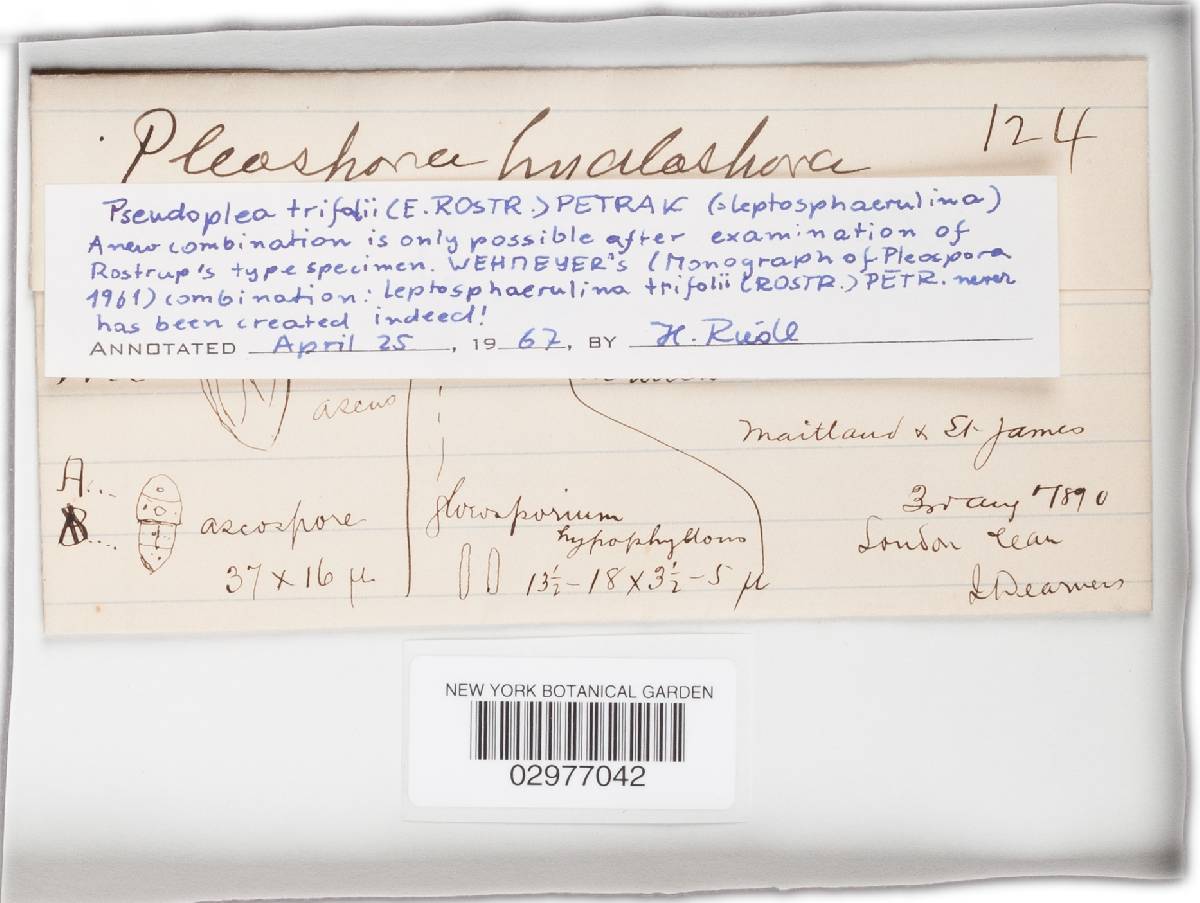 Pleospora hyalospora 124
Pseudoplea trifolii (E. ROSTR.) PETRAK (=Leptosphaerulina)
A new combination is only possible after examination of
Rostrup's type specimen. WEHMEYER's (Monograph of Pleospora
1961) combination: Leptosphaerulina trifolii (ROSTR.) PETR. never
has been created indeed!
ANNOTATED April 25, 1967, BY H. Riedl
ascus
Maitland & St James
A... ascospore
B....
37 x 16 µ
gloeosporium
hypophyllous
13½-18 x 3½-5 µ
3rd aug 1890
London Can
J Dearness
NEW YORK BOTANICAL GARDEN
02977042